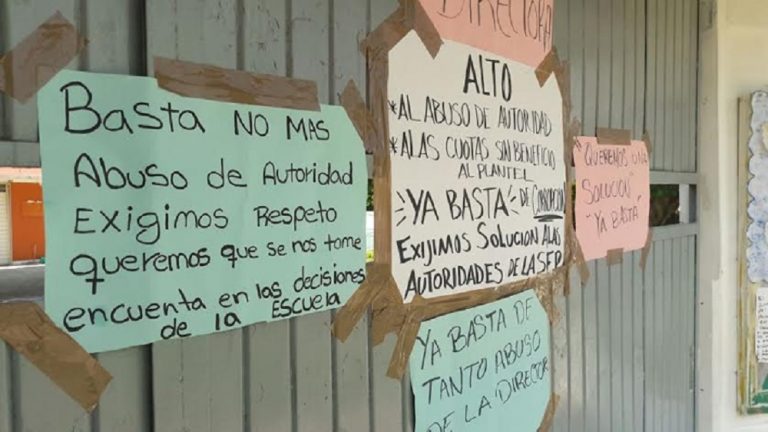 Basta NO MAS
Abuso de Autoridad
Exigimos Respeto
queremos que se nos tome
encuenta en las decisiones
de la Escuela
DIRECTORA
ALTO
*AL ABUSO DE AUTORIDAD
*A LAS CUOTAS SIN BENEFICIO
AL PLANTEL
YA BASTA DE CORRUPCION
EXIJIMOS SOLUCION A LAS
AUTORIDADES DE LA SEP
YA BASTA DE
TANTO ABUSO
DE LA DIRECTOR
"QUEREMOS UNA
SOLUCION"
"YA BASTA"